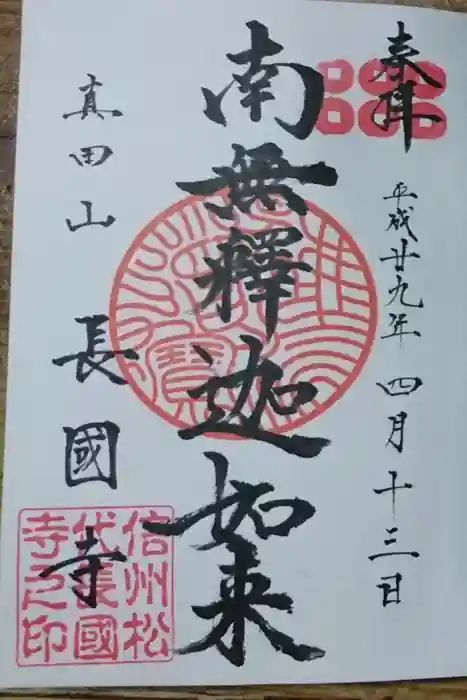 奉拝
平成廿九年 四月十三日
南無釋迦如来
真田山 長國寺
信州松
代長國
寺之印